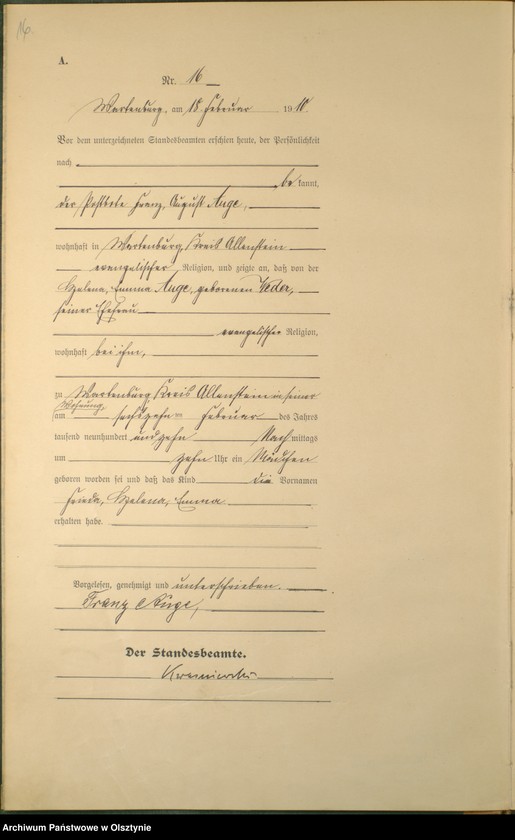 16.
A.
Nr. 16
Wartenburg, am 18. Februar 1910
Vor dem unterzeichneten Standesbeamten erschien heute, der Persönlichkeit
nach
bekannt,
der Postbote Franz, August Auge,
wohnhaft in Wartenburg, Kreis Allenstein
evangelischer Religion, und zeigte an, daß von der
Helena, Emma Auge, geborenen
seiner Ehefrau
evangelischer Religion,
wohnhaft bei ihm,
zu Wartenburg, Kreis Allenstein in seiner
Wohnung,
am sechszehn Februar des Jahres
tausend neunhundert und zehn Nachmittags
um zehn Uhr ein Mädchen
geboren worden sei und daß das Kind die Vornamen
Frieda, Helena, Emma
erhalten habe.
Vorgelesen, genehmigt und unterschrieben.
Franz Auge,
Der Standesbeamte.
Archiwum Państwowe w Olsztynie